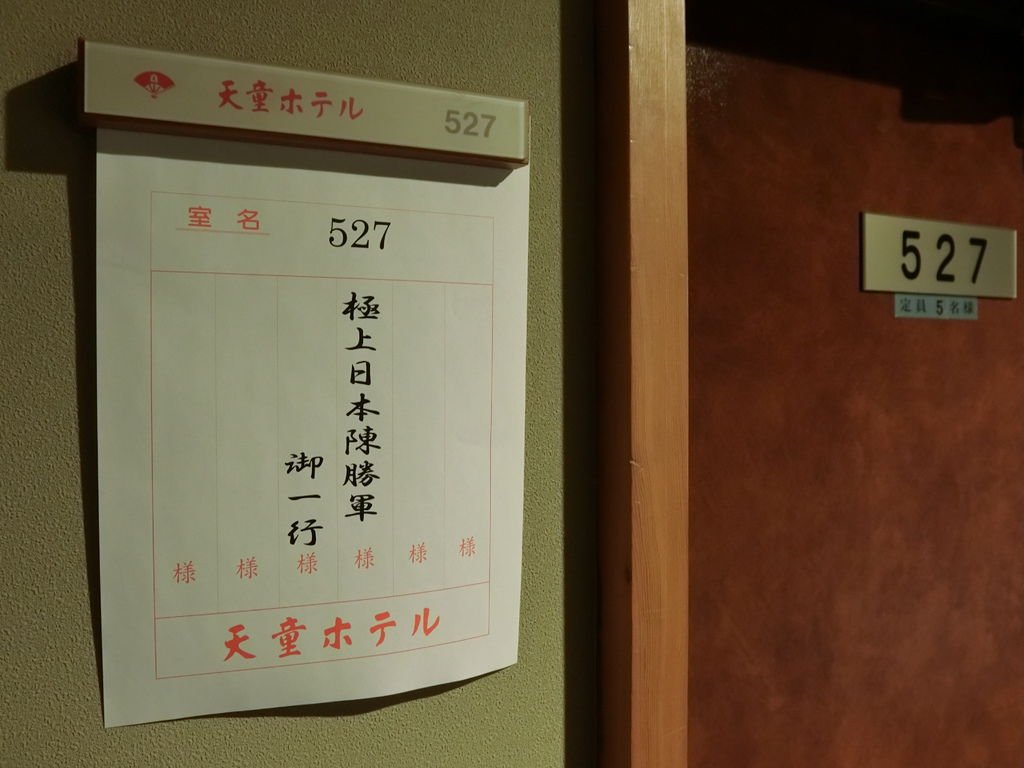 天童ホテル
527
室名
527
極上日本陳勝軍
御一行
様 様 様 様 様 様
天童ホテル
527
定員 5 名様